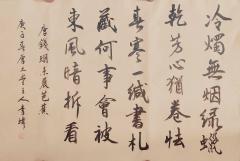 冷燭無烟綠蠟
乾芳心猶卷怯
春寒一緘書札
藏何事會被
東風暗拆看
唐錢珝未展芭蕉